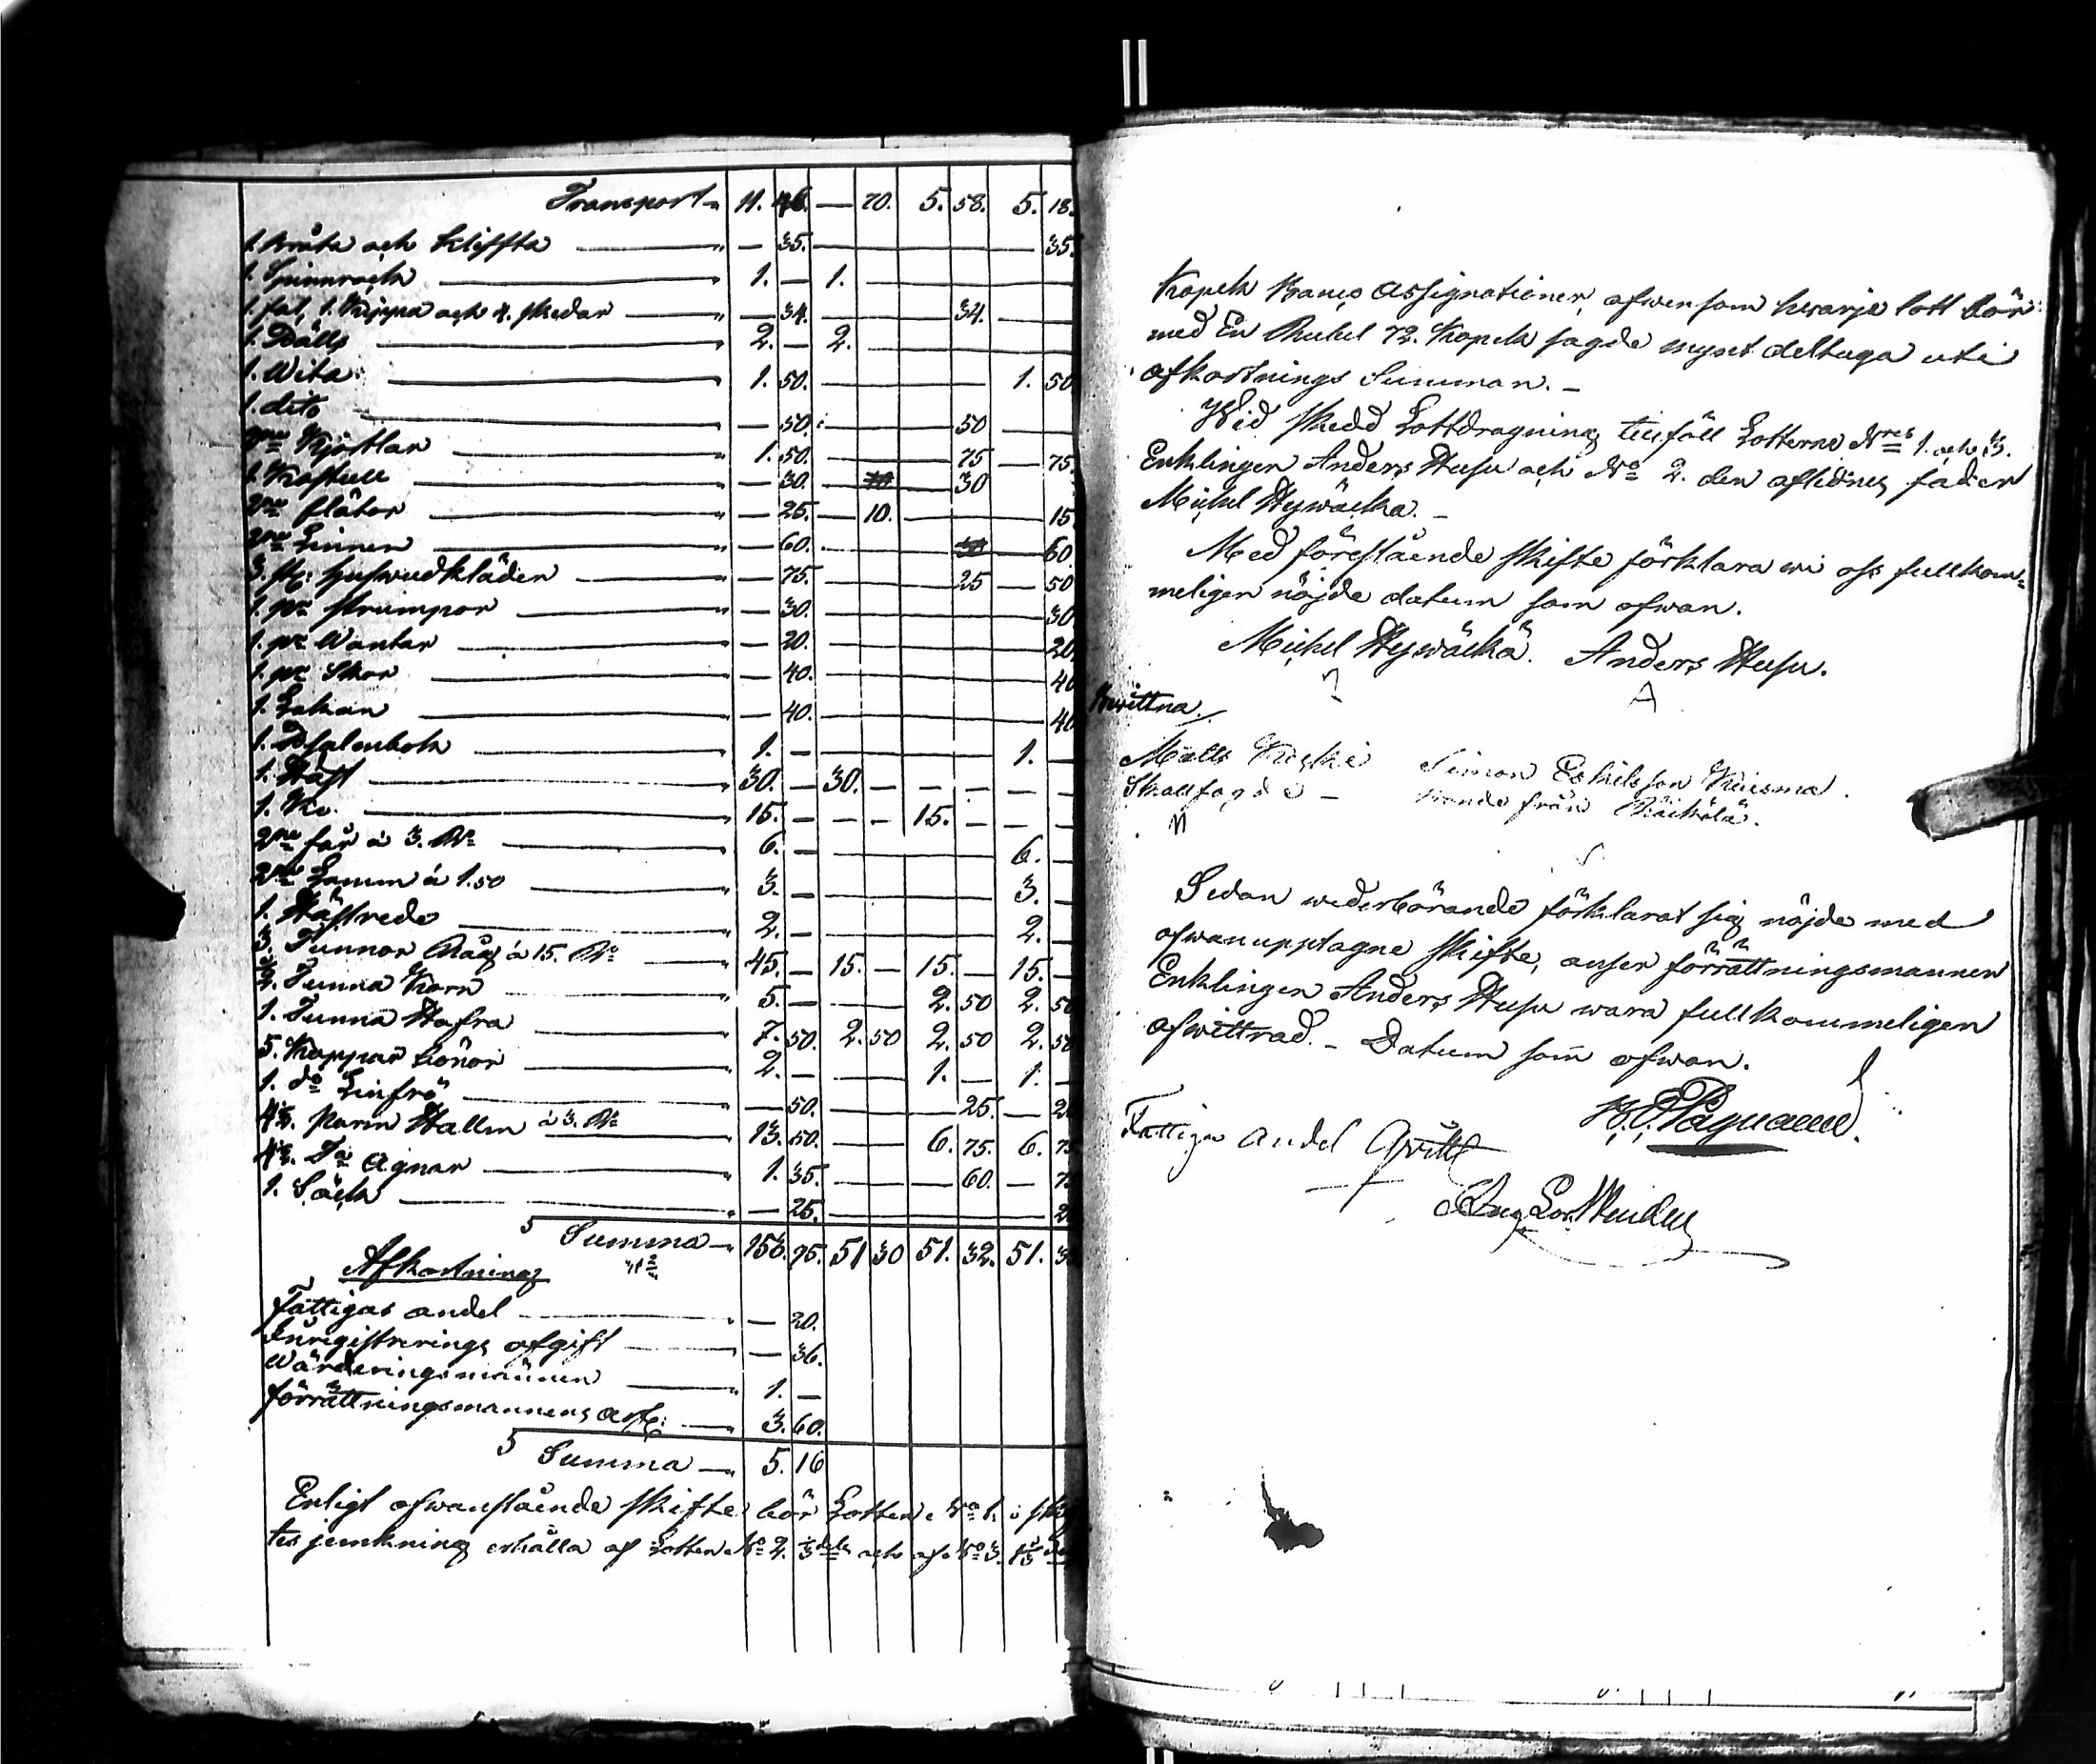 Transport 11. 46. — 70. 5. 58. 5. 18.
1. Bråka och Kliffta — 35. — 35.
1. Spinnrock 1. — 1. —
1. fat, 1. Kippa och 4. skedar — 34. — 34. —
1. Pälls 2. — 2. —
1. Wita 1. 50. — 1. 50
1. dito — 50. — 50
2ne Kjortlar 1. 50. — 75 — 75.
1. Kastull — 30. — 30
2ne flätor — 25. — 10. — 15
2ne Linnen — 60. — 60.
3. st: hufwudkläden — 75. — 25 — 50
1. pr strumpor — 30. — 30
1. pr Wantar — 20. — 20.
1. pr Skor — 40. — 40
1. Lakan — 40. — 40
1. Psalmbok 1. — 1. —
1. Häst 30. — 30. — — — —
1. Ko 15. — — — 15. — — —
2ne får á 3. Rr 6. — 6. —
2ne Lamm á 1.50 3. — 3. —
1. Hästrede 2. — 2. —
3. Tunnor Råg á 15. Rr 45. — 15. — 15. — 15. —
½. Tunna Korn 5. — 2. 50 2. 50
1. Tunna Hafra 7. 50. 2. 50 2. 50 2. 50
5. Kappar bönor 2. — 1. — 1. —
1. do Linfrö — 50. — 25. — 2
4½. parm Hallm á 3. Rr 13. 50. — 6. 75. 6. 75
4½. Do Agnar 1. 35. — 60. — 7
1. Säck — 25. — 2
Summa 153. 95. 51 30 51. 32. 51. 3
Afkortning
Fattigas andel — 20.
Inregistrerings afgift — 36.
Wärderingsmännen 1. —
förrättningsmannens arf: 3. 60.
Summa 5. 16
Enligt ofwanstående skifte bör Lotten No 1. i
tes jemkning erhålla af Lotten No 2. ⅓ dels och af No 3.
Kopek Banco Assignationer, äfwensom hwarje lott bör
med En Rubel 72. Kopek sagde mynt deltaga uti
afkortnings Summan. —
Wid skedd Lottdragning tillföll Lotterne Nris 1. och 3.
Enklingen Anders Husu och No 2. den aflidnes fader
Michel Hywäckä. —
Med förestående skifte förklara wi oss fullkom-
meligen nöjde datum som ofwan.
Michel Hywäckä. Anders Husu.
Bewittna.
Matts Simon Eskilsson Kuisma.
Skallfogde — Bonde från Räikölä.
Sedan wederbörande förklarat sig nöjde med
ofwanupptagne skifte, anser förrättningsmannen
Enklingen Anders Husu wara fullkommeligen
afwittrad. — Datum som ofwan.
Fattige andel Qvitt